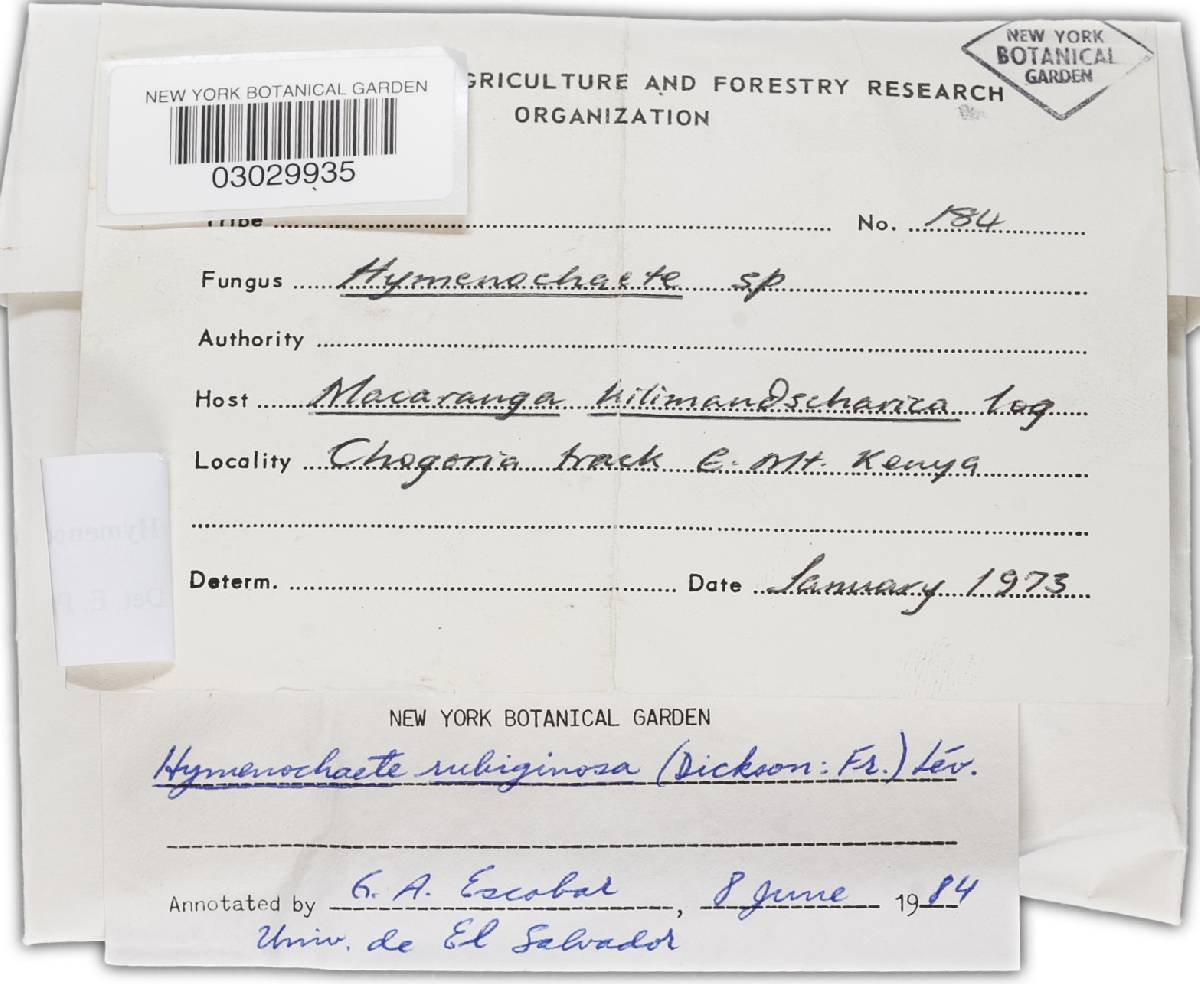 NEW YORK
BOTANICAL
GARDEN
NEW YORK BOTANICAL GARDEN
03029935
GRICULTURE AND FORESTRY RESEARCH
ORGANIZATION
Tribe No. 184
Fungus Hymenochaete sp
Authority
Host Macaranga kilimandscharica log
Locality Chogoria track E. Mt. Kenya
Determ. Date January 1973
NEW YORK BOTANICAL GARDEN
Hymenochaete rubiginosa (Dickson: Fr.) Lév.
Annotated by G. A. Escobar, 8 June 1984
Univ. de El Salvador